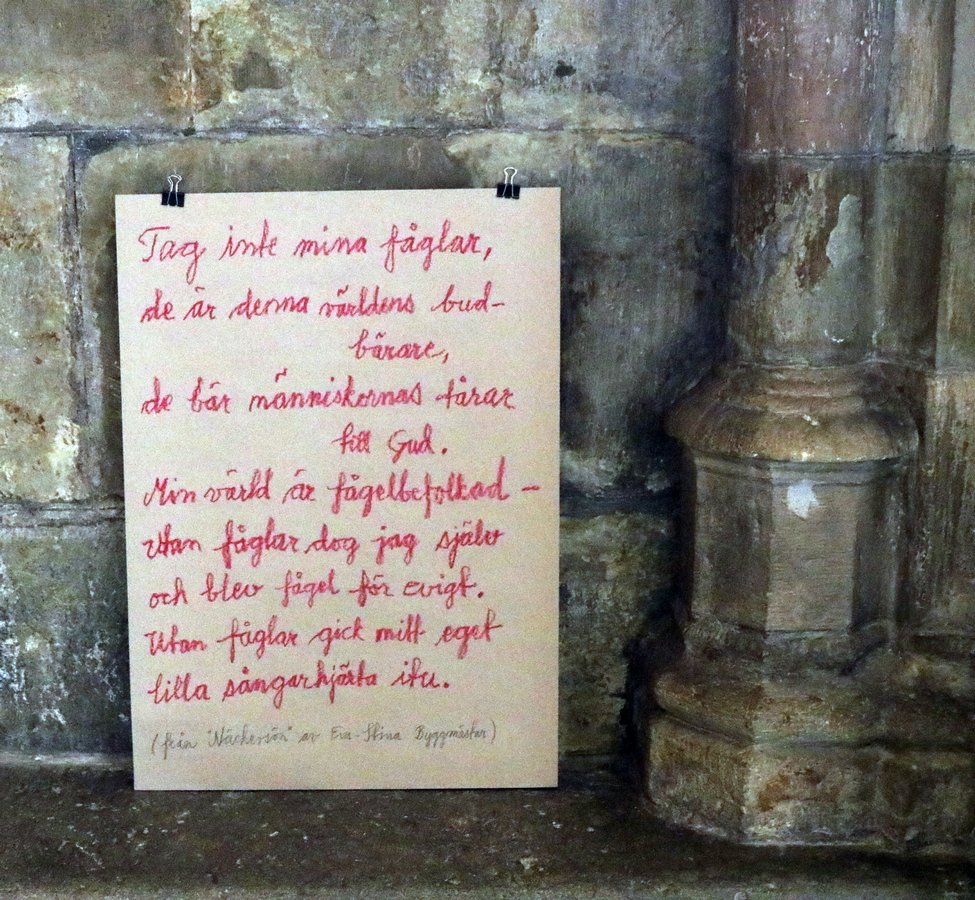 Tag inte mina fåglar,
de är denna världens bud-
bärare,
de bär människornas tårar
till Gud.
Min värld är fågelbefolkad –
utan fåglar dog jag själv
och blev fågel för evigt.
Utan fåglar gick mitt eget
lilla sångarhjärta itu.
(från "Näckrosön" av Eva-Stina Byggmästar)